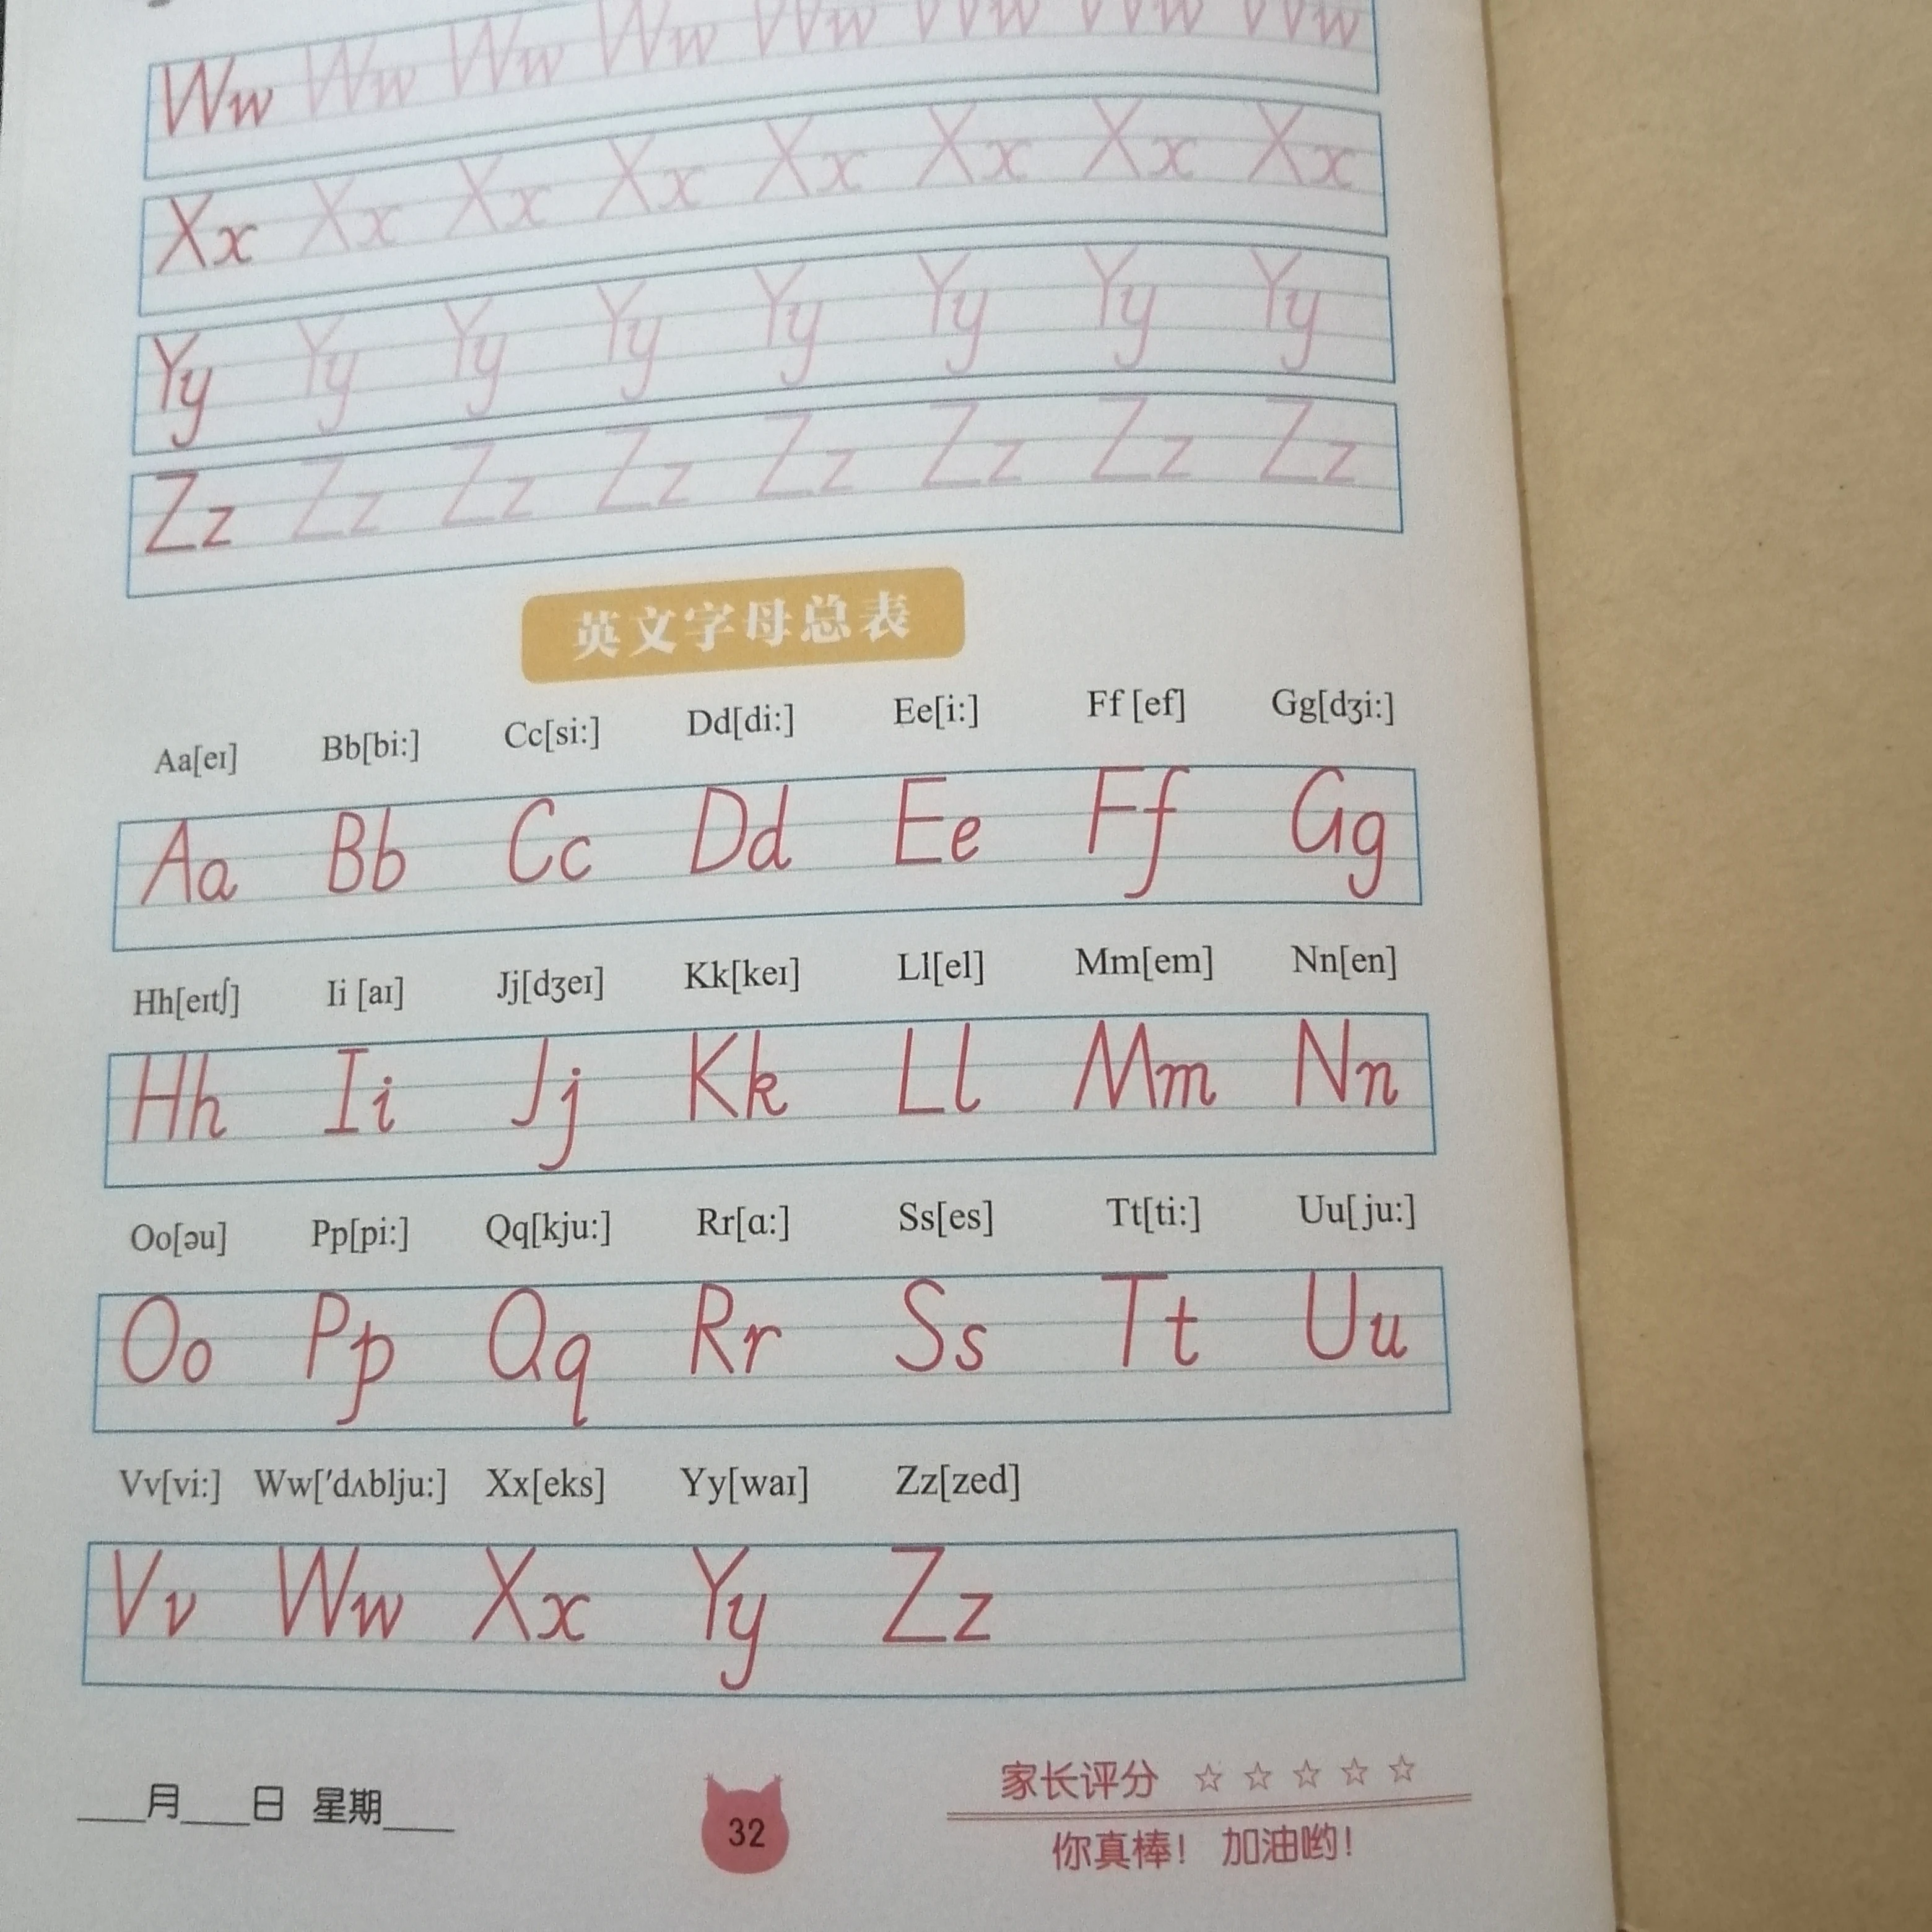 Ww Ww Ww Ww Ww Ww Ww Ww
Xx Xx Xx Xx Xx Xx Xx Xx
Yy Yy Yy Yy Yy Yy Yy Yy
Zz Zz Zz Zz Zz Zz Zz Zz
英文字母总表
Aa[eɪ] Bb[bi:] Cc[si:] Dd[di:] Ee[i:] Ff [ef] Gg[dʒi:]
Aa Bb Cc Dd Ee Ff Gg
Hh[eɪtʃ] Ii [aɪ] Jj[dʒeɪ] Kk[keɪ] Ll[el] Mm[em] Nn[en]
Hh Ii Jj Kk Ll Mm Nn
Oo[əu] Pp[pi:] Qq[kju:] Rr[ɑ:] Ss[es] Tt[ti:] Uu[ju:]
Oo Pp Qq Rr Ss Tt Uu
Vv[vi:] Ww['dʌblju:] Xx[eks] Yy[waɪ] Zz[zed]
Vv Ww Xx Yy Zz
___月___日 星期___
32
家长评分 ☆ ☆ ☆ ☆ ☆
你真棒！ 加油哟！